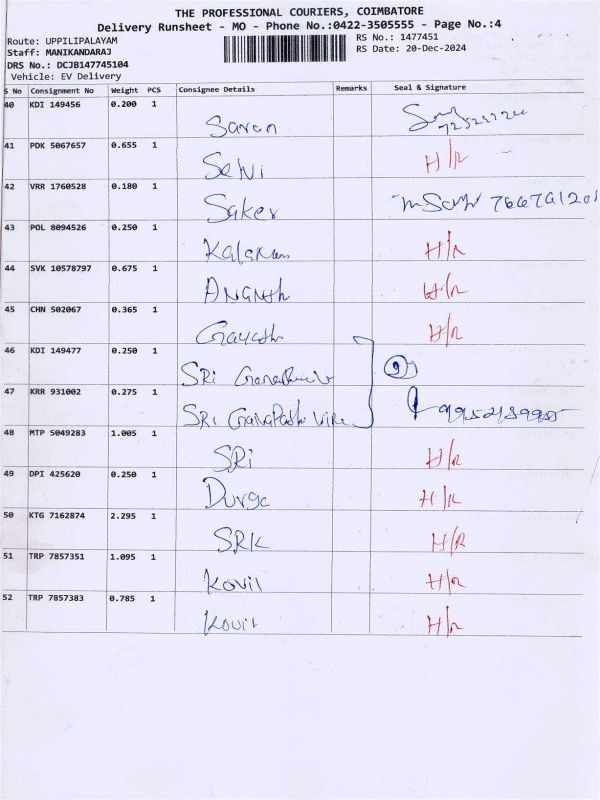 THE PROFESSIONAL COURIERS, COIMBATORE
Delivery Runsheet - MO - Phone No.:0422-3505555 - Page No.:4
Route: UPPILIPALAYAM
RS No.: 1477451
Staff: MANIKANDARAJ
RS Date: 20-Dec-2024
DRS No.: DCJB147745104
Vehicle: EV Delivery
S No Consignment No Weight PCS Consignee Details Remarks Seal & Signature
40 KDI 149456 0.200 1 Saran
41 PDK 5067657 0.655 1 Selvi H/R
42 VRR 1760528 0.180 1 Saker
43 POL 8094526 0.250 1 H/R
44 SVK 10578797 0.675 1 H/R
45 CHN 502067 0.365 1 H/R
46 KDI 149477 0.250 1 SRi
47 KRR 931002 0.275 1 SRi
48 MTP 5049283 1.005 1 SRi H/R
49 DPI 425620 0.250 1 Durga H/R
50 KTG 7162874 2.295 1 SRK H/R
51 TRP 7857351 1.095 1 Kovil H/R
52 TRP 7857383 0.785 1 Kovil H/R